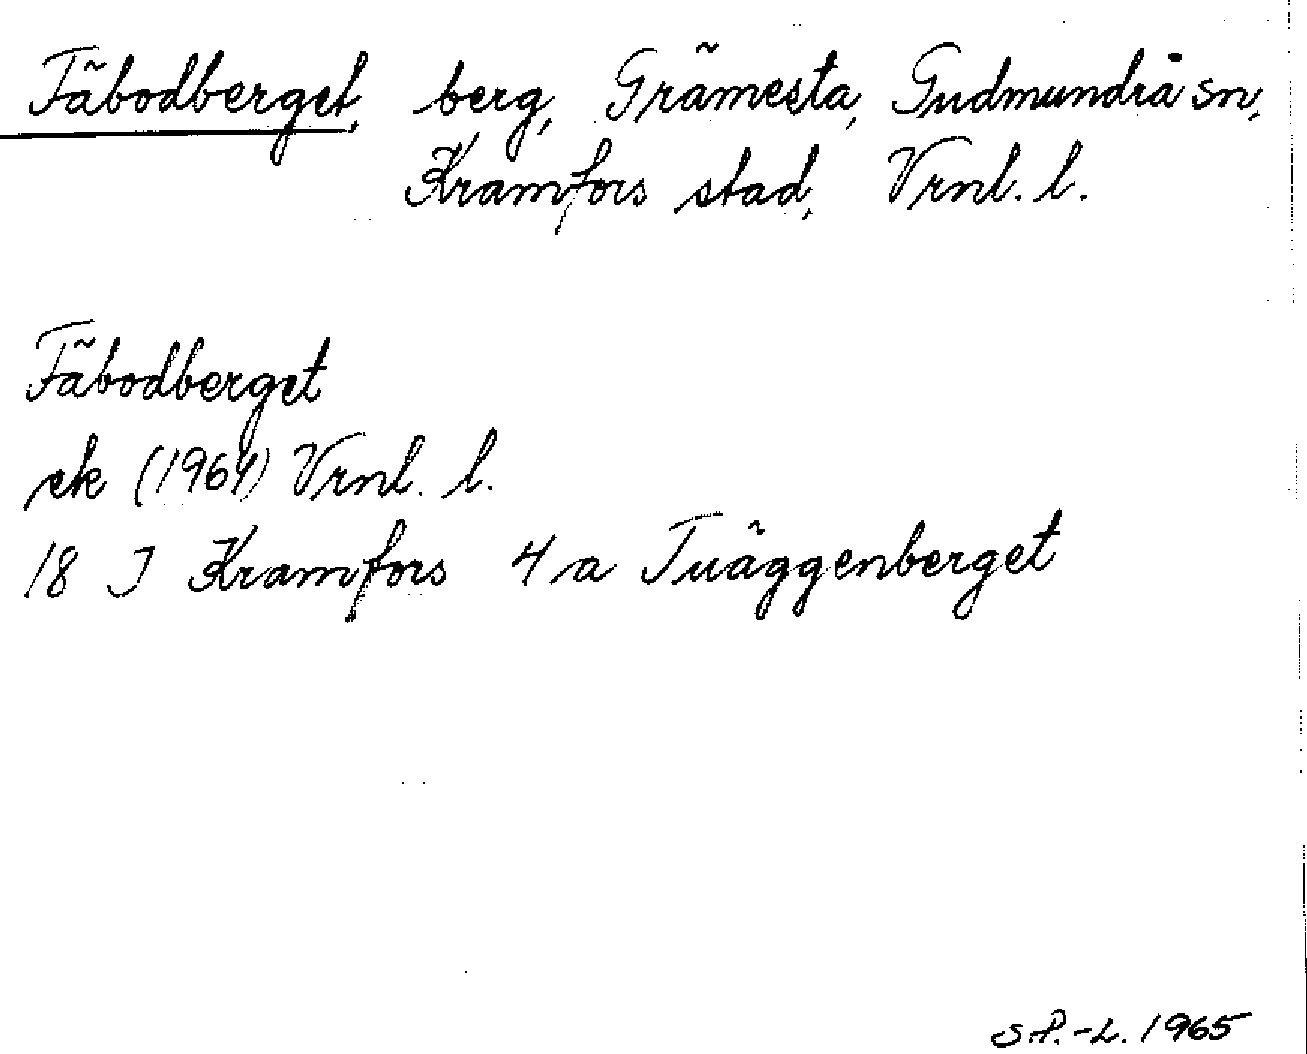 Fäbodberget, berg, Grämesta, Gudmundrå sn,
Kramfors stad, Vrnl. l.
Fäbodberget
ek (1964) Vrnl. l.
18 I Kramfors 4 a Tväggenberget
S.P.-L. 1965